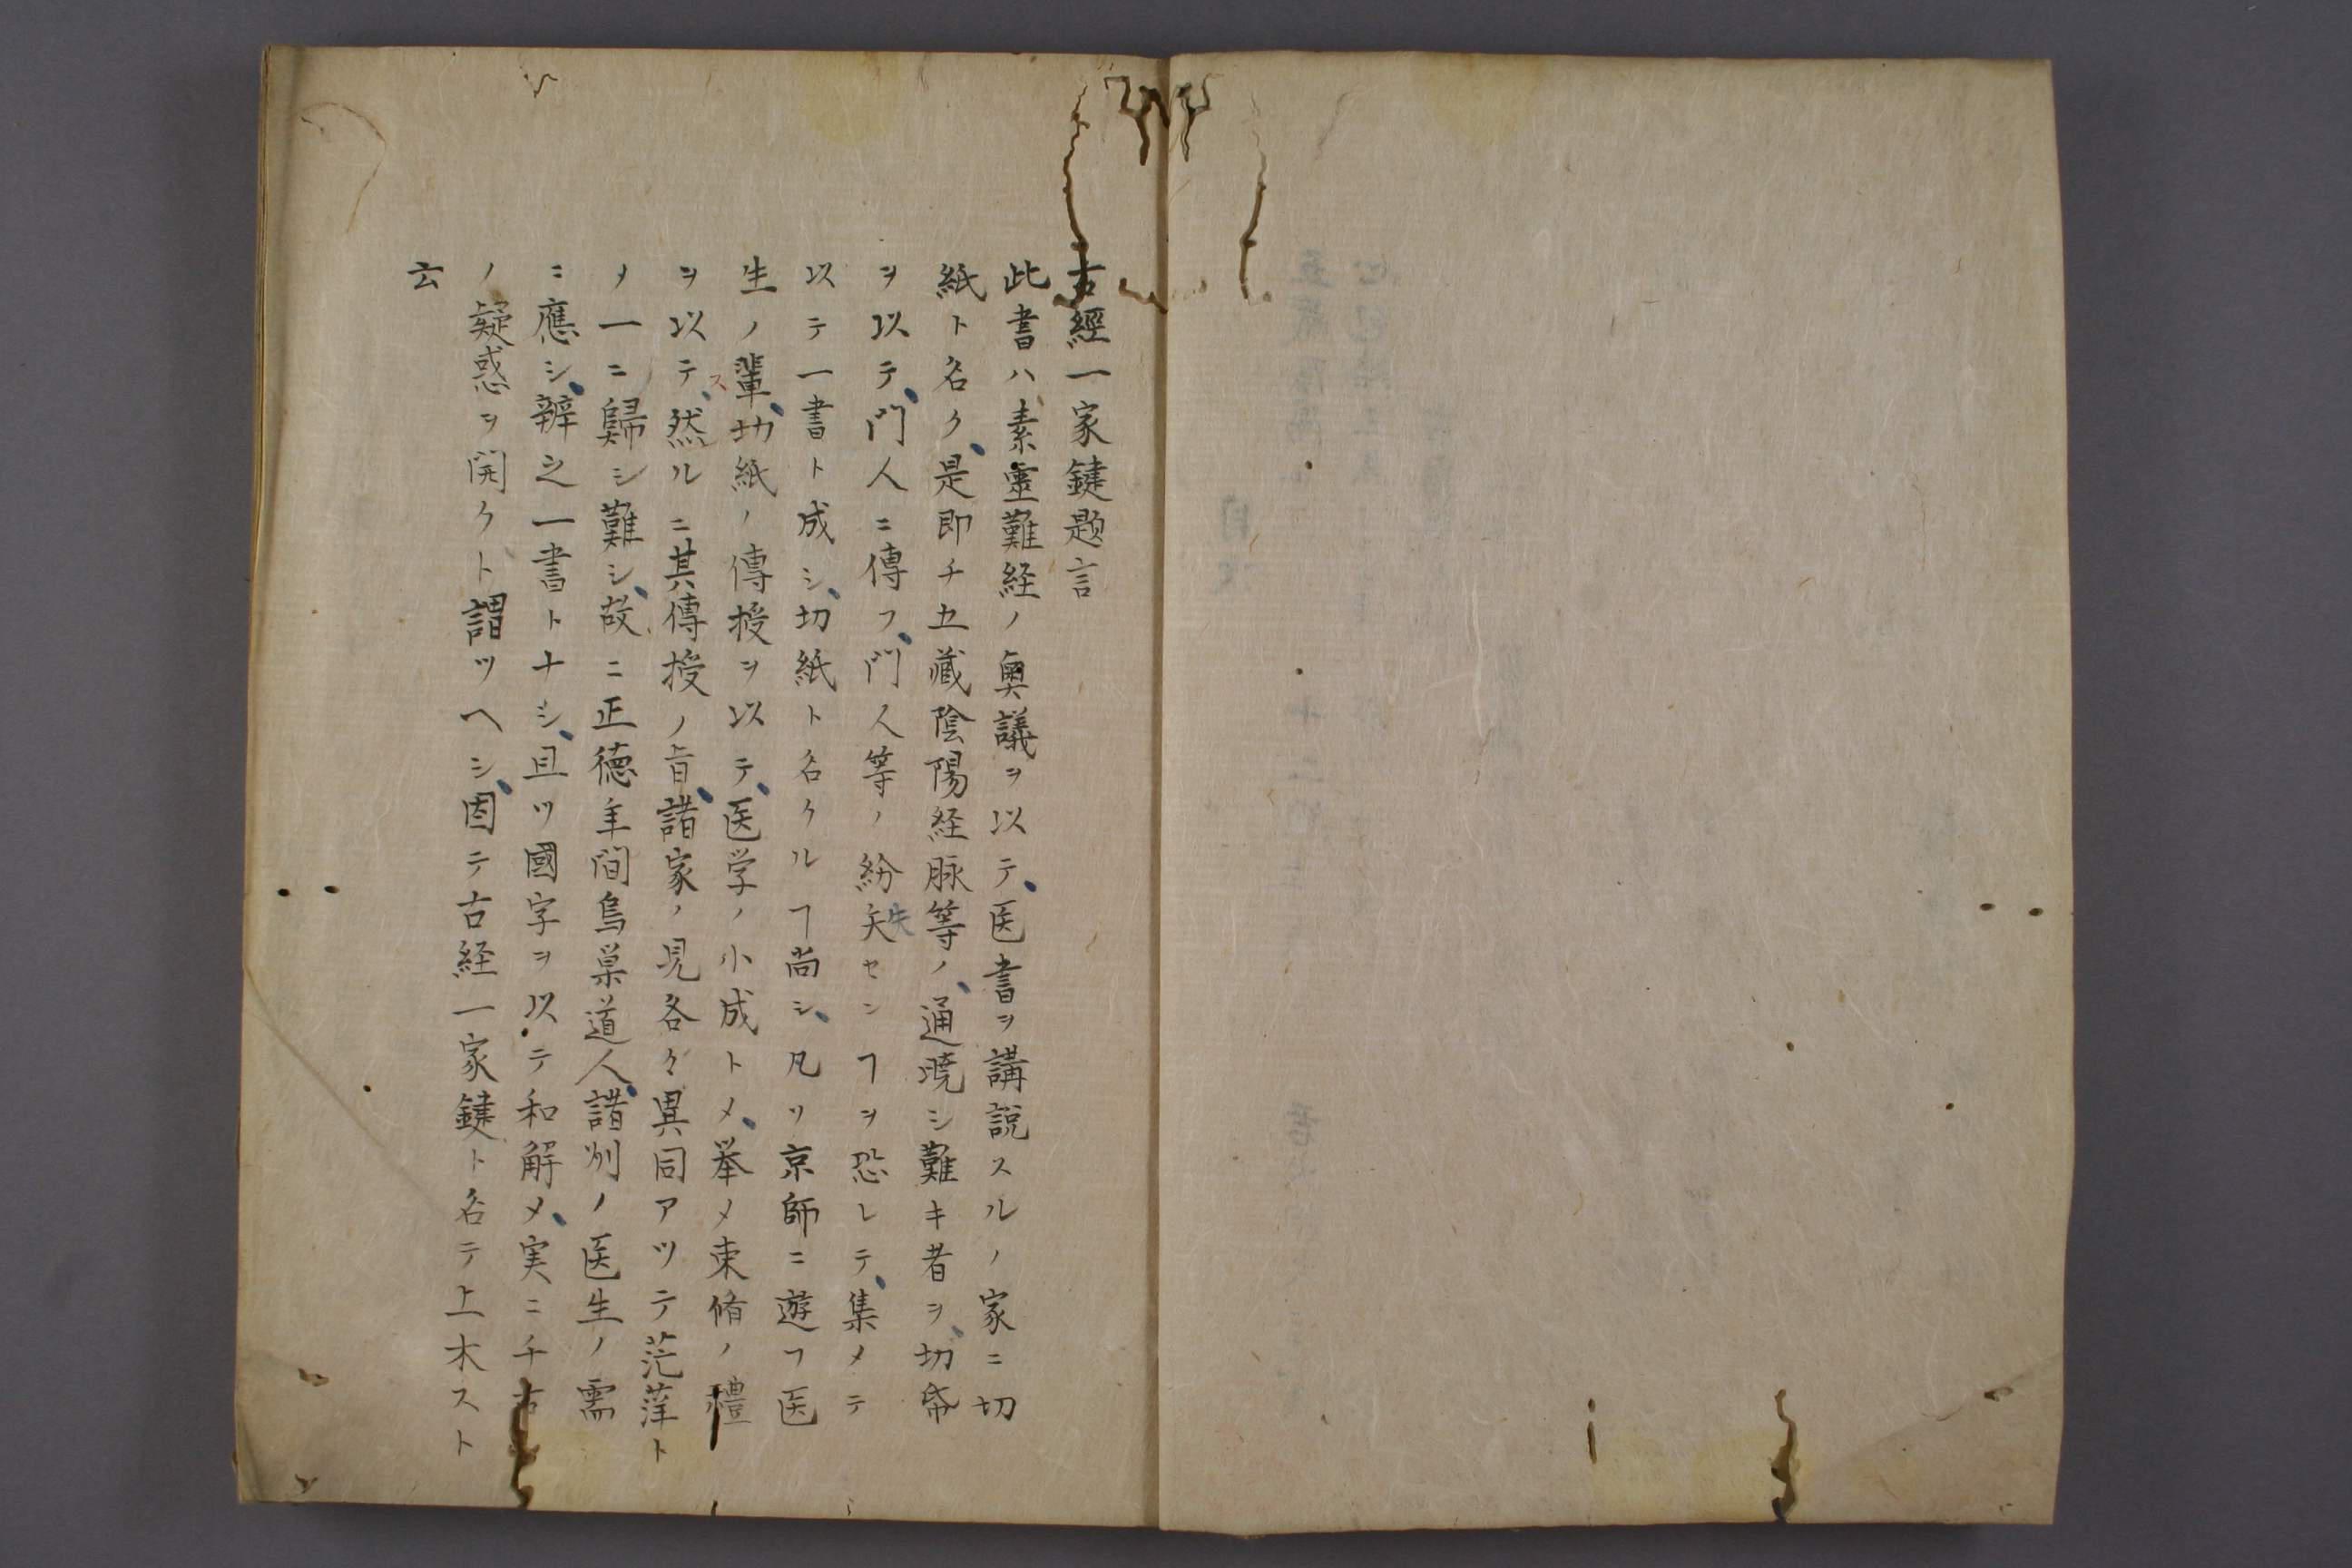 古經一家鍵題言
此書ハ素靈難経ノ奥議ヲ以テ、医書ヲ講説スルノ家ニ切
紙ト名ク、是即チ五藏陰陽経脉等ノ、通暁シ難キ者ヲ、切帋
ヲ以テ、門人ニ傳フ、門人等ノ紛矢失センヿヲ恐レテ、集メテ
以テ一書ト成シ、切紙ト名クルヿ尚シ、凡ソ京師ニ遊フ医
生ノ輩、切紙ノ傳授ヲ以テ、医学ノ小成トメ、挙メ束脩ノ禮
ヲ以テス、然ルニ其傳授ノ旨、諸家ノ見各々異同アツテ茫洋ト
メ一ニ歸シ難シ、故ニ正徳年間烏巣道人、諸州ノ医生ノ需
ニ應シ、辨之一書トナシ、且ツ國字ヲ以テ和解メ、実ニ千古
ノ疑惑ヲ開クト謂ツヘシ、因テ古経一家鍵ト名テ上木スト
云